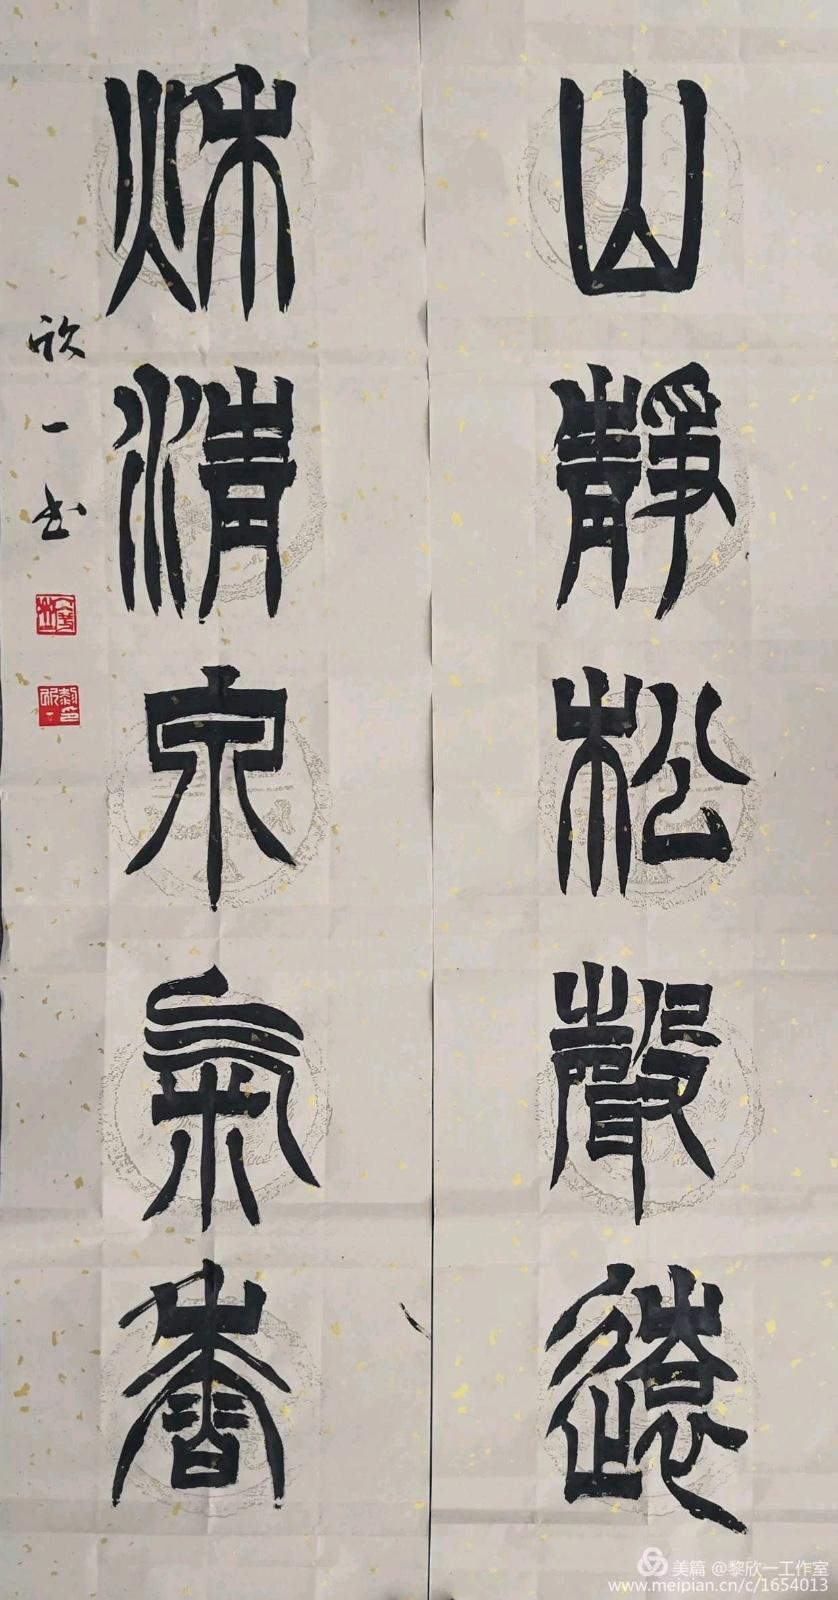 山靜松聲遠
秌清泉氣香
欣一书
美篇 @黎欣一工作室
www.meipian.cn/c/1654013